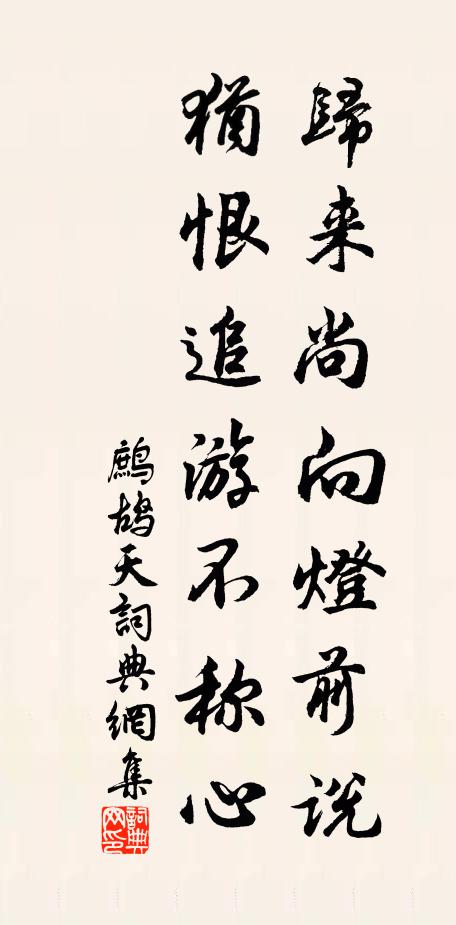 歸来尚向燈前説
猶恨追游不称心
鷓鴣天詞典網集
詞典网印